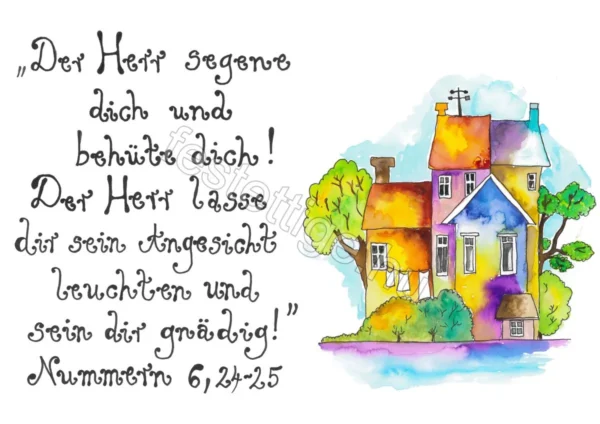 „Der Herr segene
dich und
behüte dich!
Der Herr lasse
dir sein Angesicht
leuchten und
sein dir gnädig!”
Nummern 6, 24-25